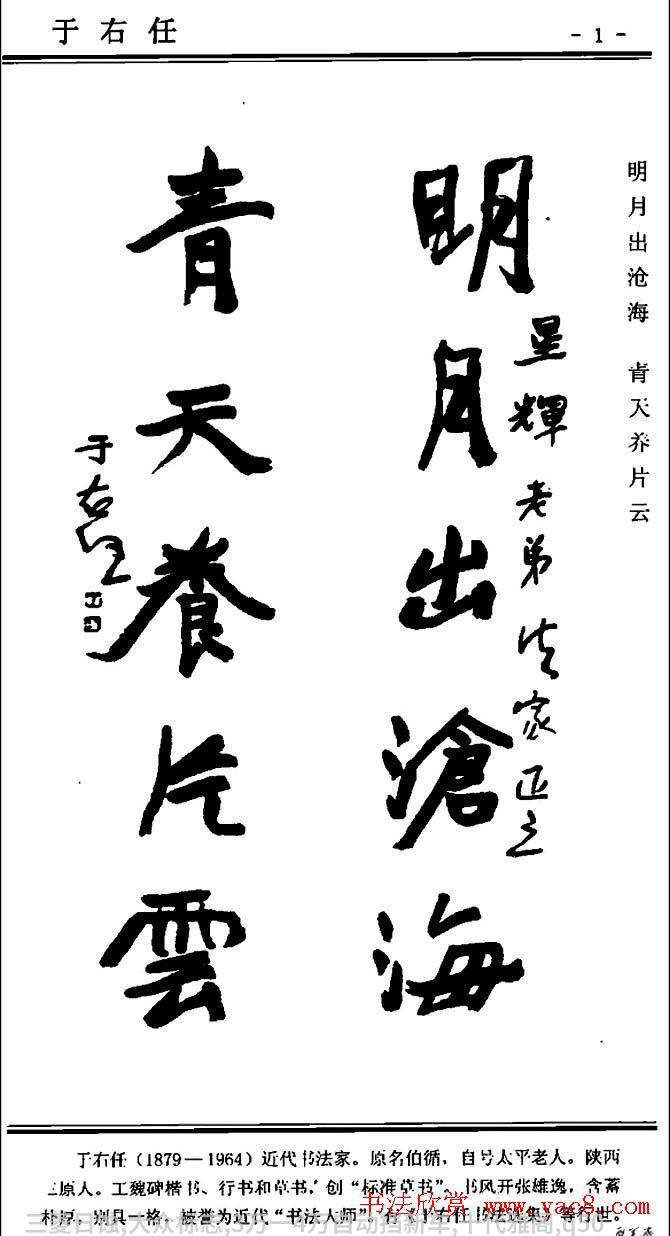 于右任
-1-
明月出沧海 青天养片云
星輝老弟法家正之
明月出滄海
青天養片雲
于右任
于右任（1879—1964）近代书法家。原名伯循，自号太平老人。陕西
三原人。工魏碑楷书、行书和草书，创“标准草书”，书风开张雄逸，含蓄
朴厚，别具一格，被誉为近代“书法大师”，有《于右任书法选集》等行世。
书法欣赏 www.yac8.com